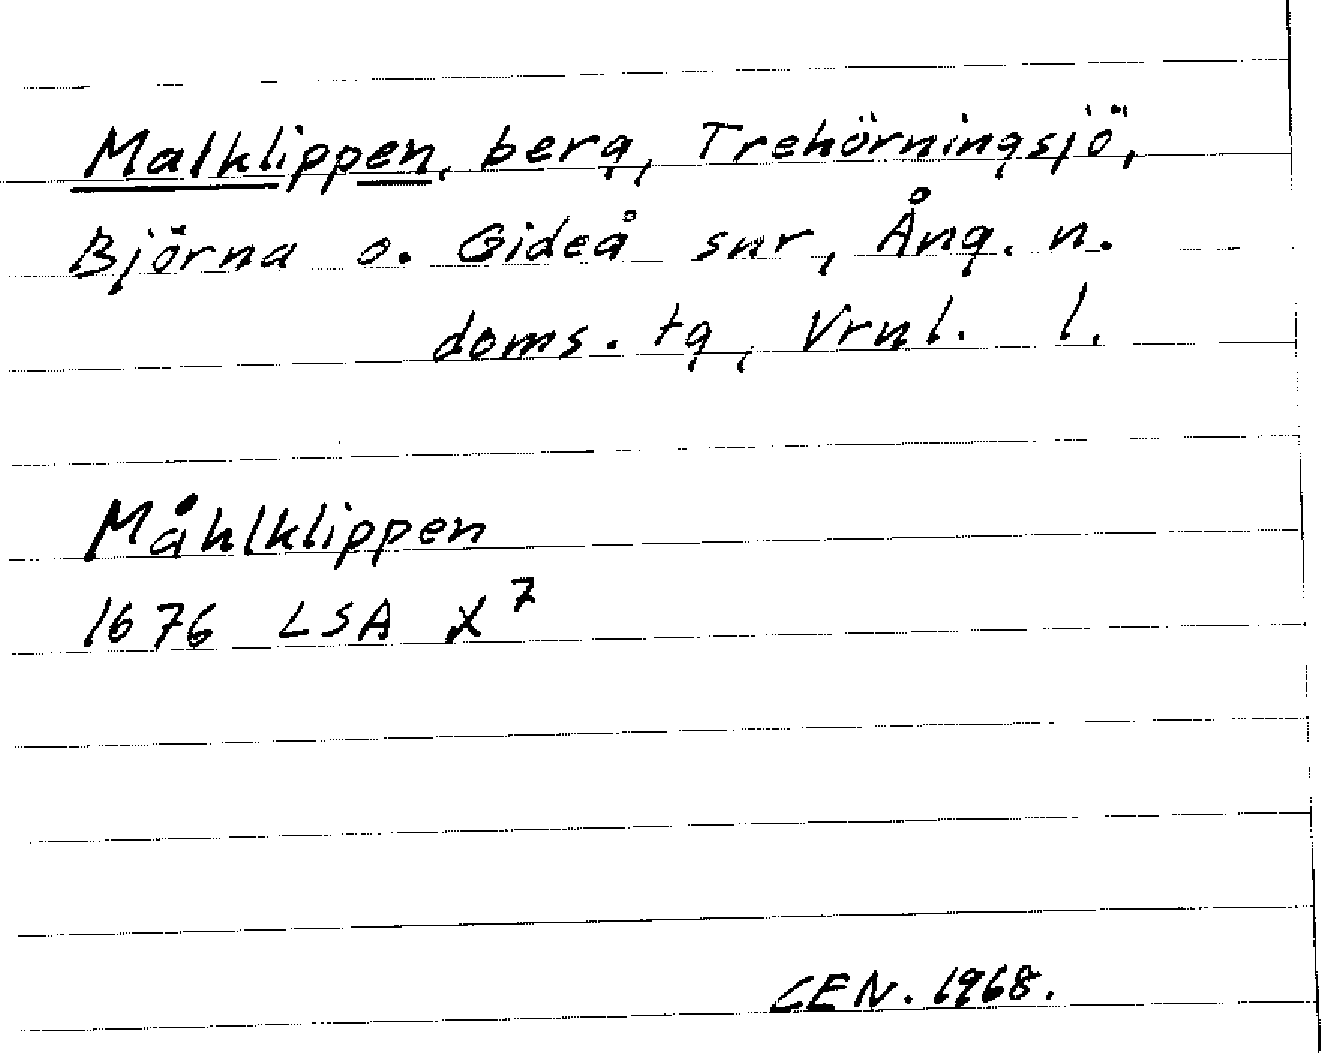 Malklippen, berg, Trehörningsjö,
Björna o. Gideå snr, Ång. n.
doms. tg, Vrnl. l.
Måhlklippen
1676 LSA X 7
CEN. 1968.